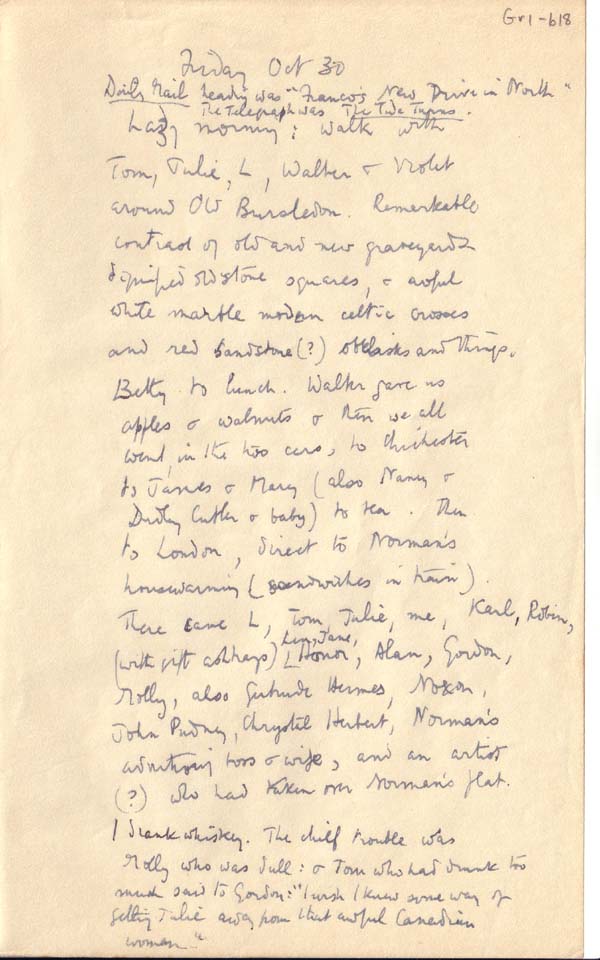 Gr1-b18
Friday Oct 30
Daily Mail heading was "Franco's New Drive in North"
The Telegraph was The Tide Turns.
Lazy morning: walk with
Tom, Julie, L, Walter & Violet
around Old Bursledon. Remarkable
contrast of old and new graveyards
dignified old stone squares, & awful
white marble modern celtic crosses
and red sandstone (?) obelisks and things.
Betty to lunch. Walter gave us
apples & walnuts & then we all
went, in the two cars, to Chichester
to James & Mary (also Nancy &
Dudley Cutler & baby) to tea. Then
to London, direct to Norman's
housewarming (sandwiches in train).
There came L, Tom, Julie, me, Karl, Robin,
Len, Jane,
(with gift ashtrays) Honor, Alan, Gordon,
Molly, also Gertrude Hermes, Noxon,
John Pudney, Chrystal Herbert, Norman's
advertising boss & wife, and an artist
(?) who had taken over Norman's flat.
I drank whiskey. The chief trouble was
Molly who was dull: & Tom who had drunk too
much said to Gordon: "I wish I knew some way of
getting Julie away from that awful Canadian
woman"